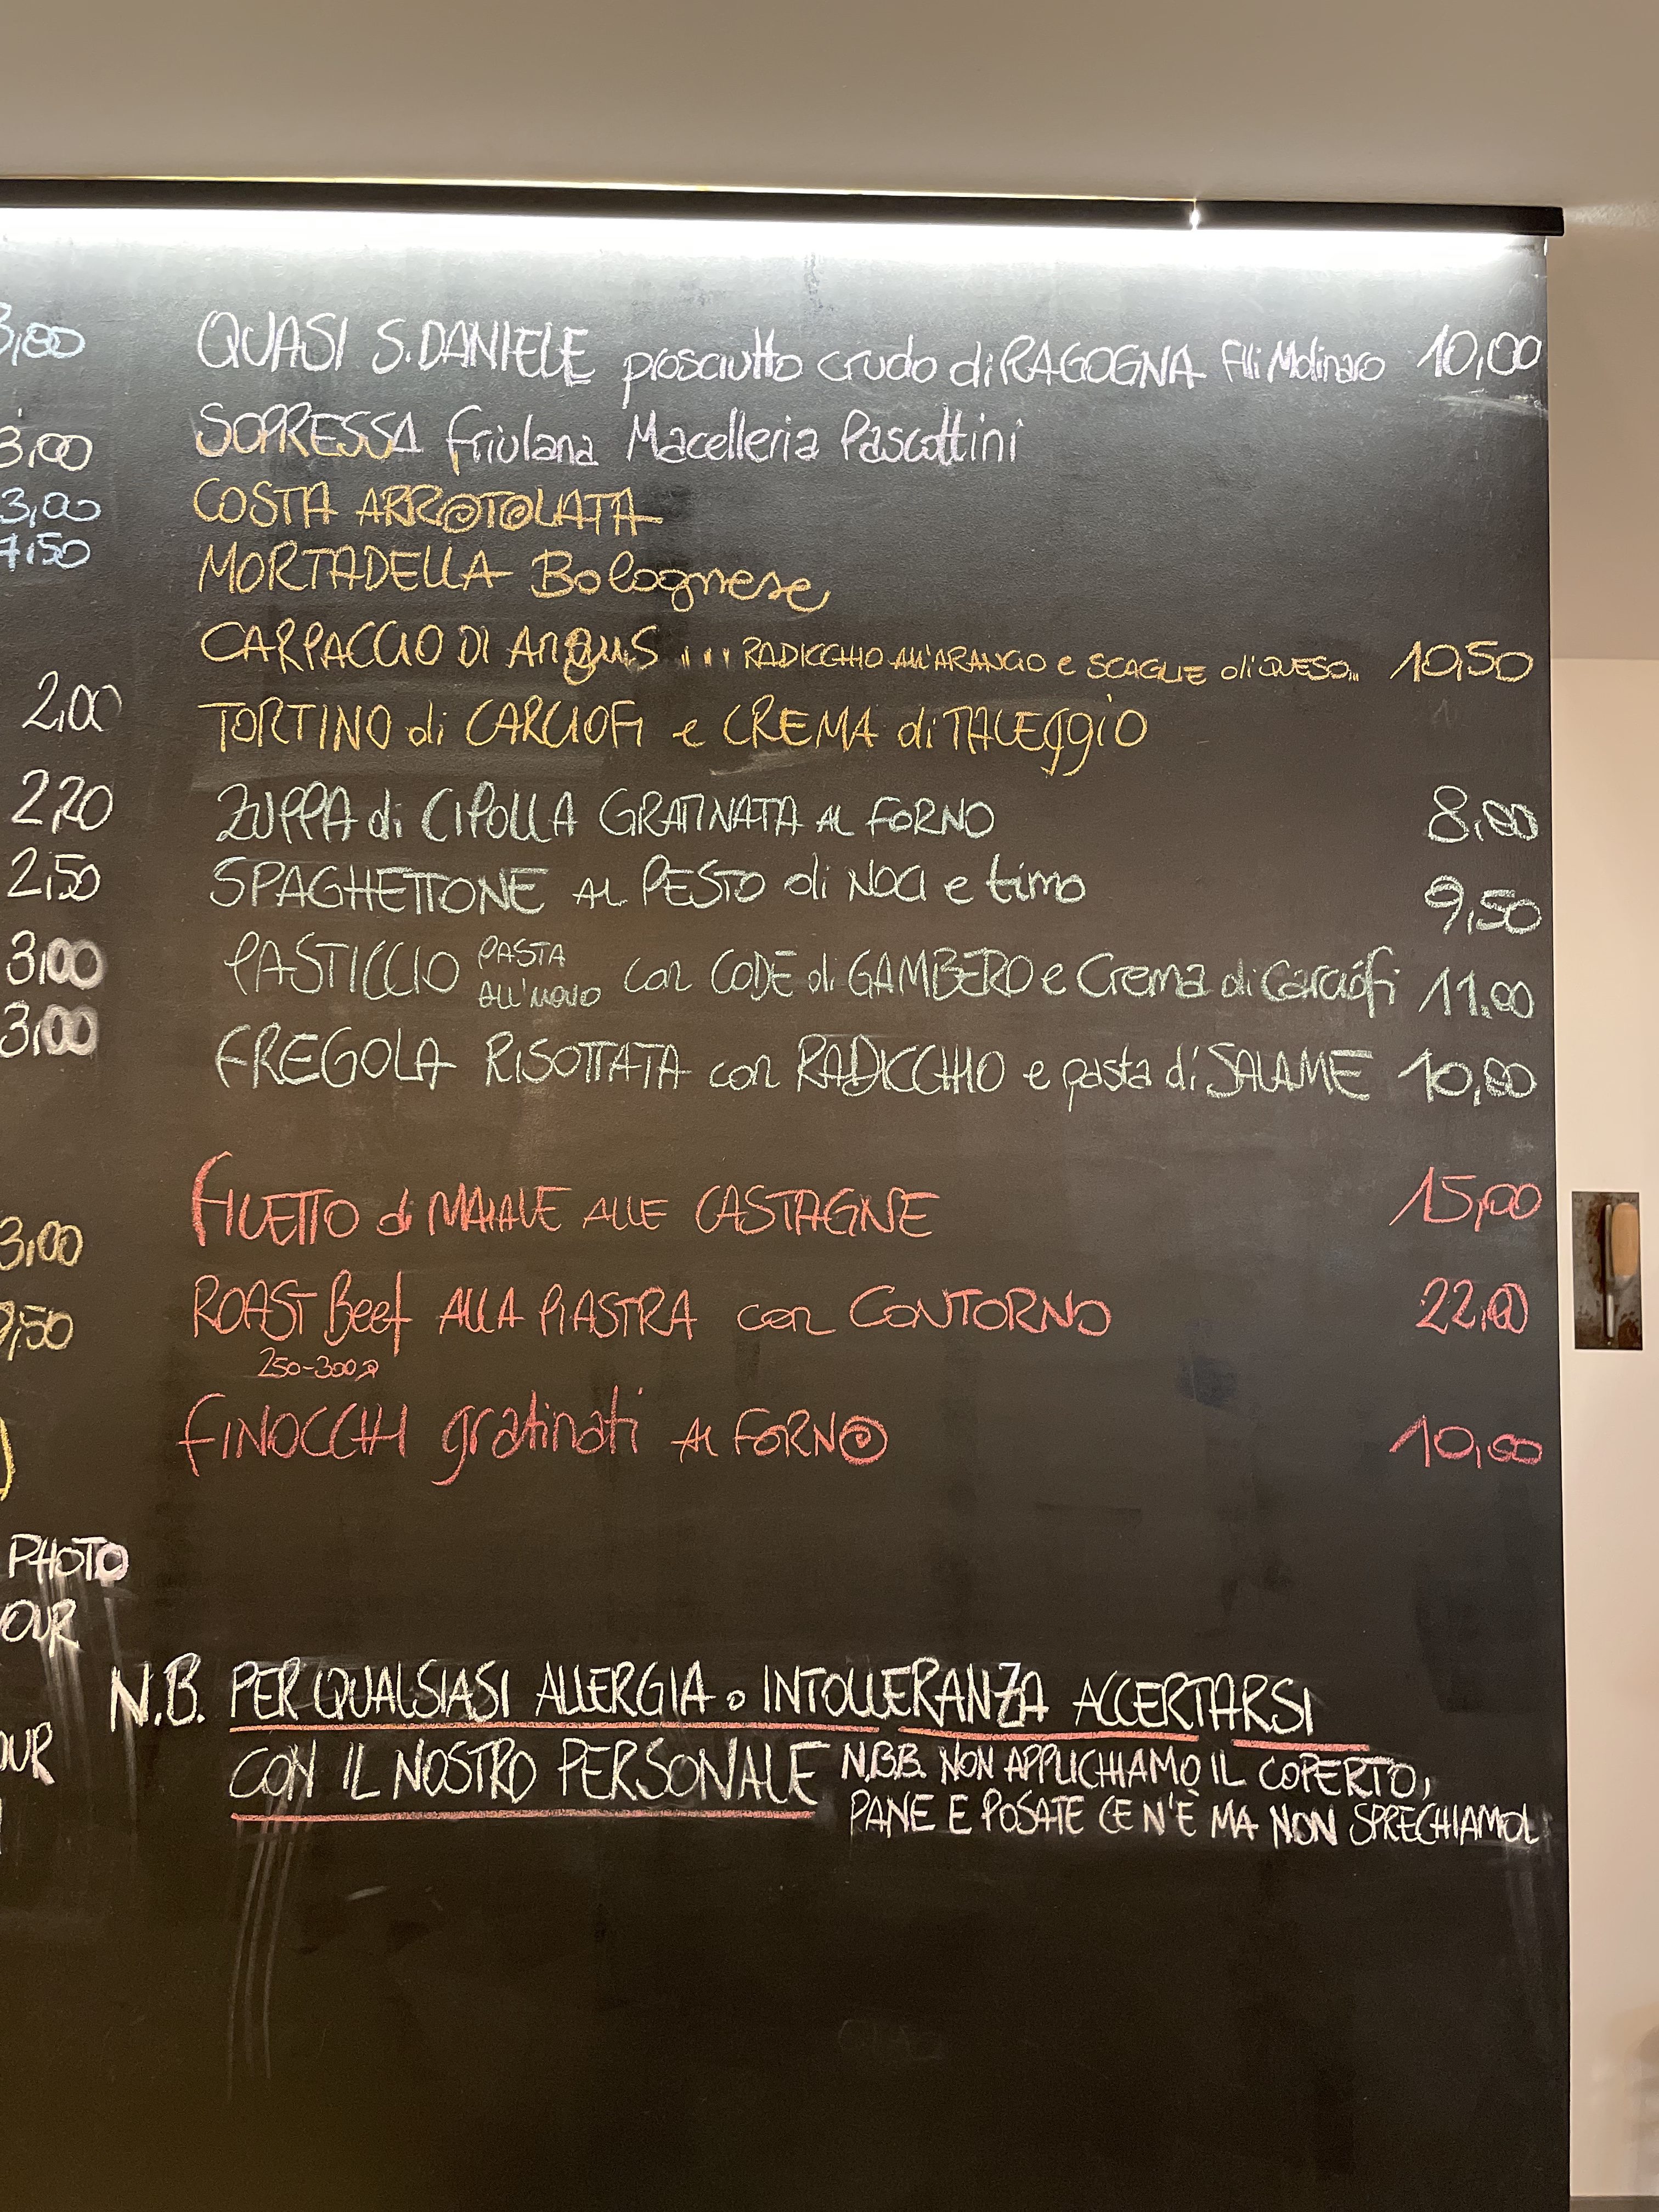 3,00
3,00
3,00
7,50
2,00
2,20
2,50
3,00
3,00
3,00
9,50
)
PHOTO
OUR
OUR
QUASI S.DANIELE prosciutto crudo di RAGOGNA F.lli Molinaro 10,00
SOPRESSA friulana Macelleria Pascottini
COSTA ARROTOLATA
MORTADELLA Bolognese
CARPACCIO DI Angus ... RADICCHIO ALL'ARANCIO e SCAGLIE di QUESO... 10,50
TORTINO di CARCIOFI e CREMA di TALEggiO
ZUPPA di CIPOLLA GRATINATA AL FORNO 8,00
SPAGHETTONE AL PESTO di NOCI e timo 9,50
PASTICCIO PASTA ALL'UOVO con CODE di GAMBERO e Crema di Carciofi 11.00
FREGOLA RISOTTATA con RADICCHIO e pasta di SALAME 10,00
FILETTO di MAIALE ALLE CASTAGNE 15,00
ROAST Beef ALLA PIASTRA con CONTORNO 22,00
250-300g
FINOCCHI gratinati AL FORNO 10,00
N.B. PER QUALSIASI ALLERGIA o INTOLLERANZA ACCERTARSI
CON IL NOSTRO PERSONALE
N.B.B. NON APPLICHIAMO IL COPERTO,
PANE E POSATE CE N'È MA NON SPRECHIAMOLI